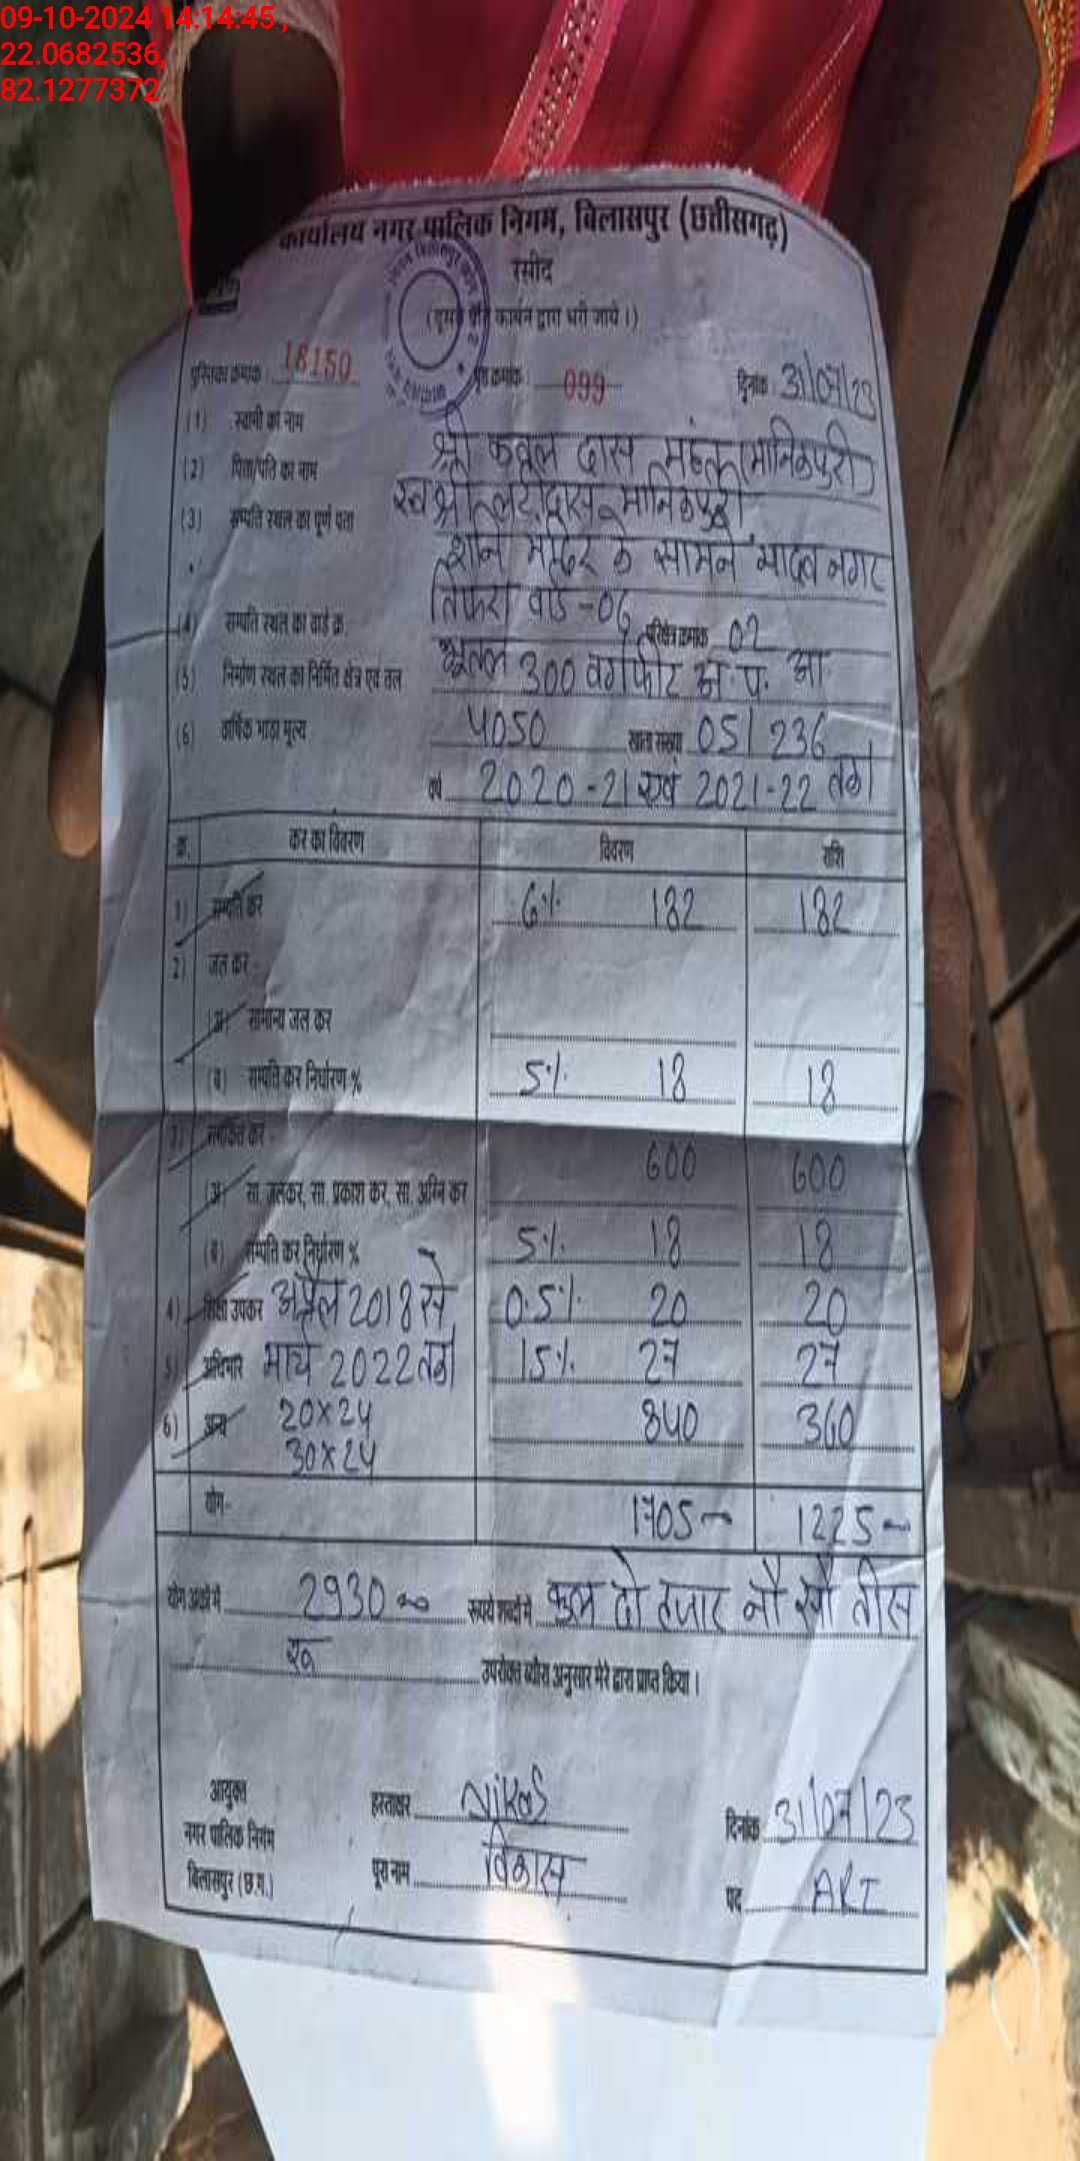 09-10-2024 14:14:45,
22.0682536,
82.1277372
कार्यालय नगर पालिक निगम, बिलासपुर (छत्तीसगढ़)
रसीद
(दूसरी प्रति कार्बन द्वारा भरी जाये।)
पुस्तिका क्रमांक 18150 पृष्ठ क्रमांक 099 दिनांक 31/07/23
(1) स्वामी का नाम श्री कबूल दास मंहत (मानिकपुरी)
(2) पिता/पति का नाम स्व श्री दास मानिकपुरी
(3) सम्पत्ति स्थल का पूर्ण पता शनि मंदिर के सामने यादव नगर
तिफरा वार्ड -06
(4) सम्पत्ति स्थल का वार्ड क्र. परिक्षेत्र क्रमांक 02
(5) निर्माण स्थल का निर्मित क्षेत्र एवं तल भूतल 300 वर्गफीट अ. प. आ
(6) वार्षिक भाड़ा मूल्य 4050 खाता संख्या 05/236
वर्ष 2020-21 एवं 2021-22 तक
क्र. कर का विवरण विवरण राशि
1) सम्पत्ति कर 6% 182 182
2) जल कर -
(अ) सामान्य जल कर
(ब) सम्पत्ति कर निर्धारण % 5% 18 18
3) समेकित कर -
(अ) सा. जलकर, सा. प्रकाश कर, सा. अग्नि कर 600 600
(ब) सम्पत्ति कर निर्धारण % 5% 18 18
4) शिक्षा उपकर अप्रैल 2018 से 0.5% 20 20
5) अधिभार मार्च 2022 तक 15% 27 27
6) अन्य 20x24 840 360
30x24
योग- 1705 1225
योग अंकों में 2930 रूपये शब्दों में कुल दो हजार नौ सौ तीस
रू उपरोक्त ब्यौरा अनुसार मेरे द्वारा प्राप्त किया।
आयुक्त
नगर पालिक निगम
बिलासपुर (छ.ग.)
हस्ताक्षर Vikas दिनांक 31/07/23
पूरा नाम विकास पद ARI